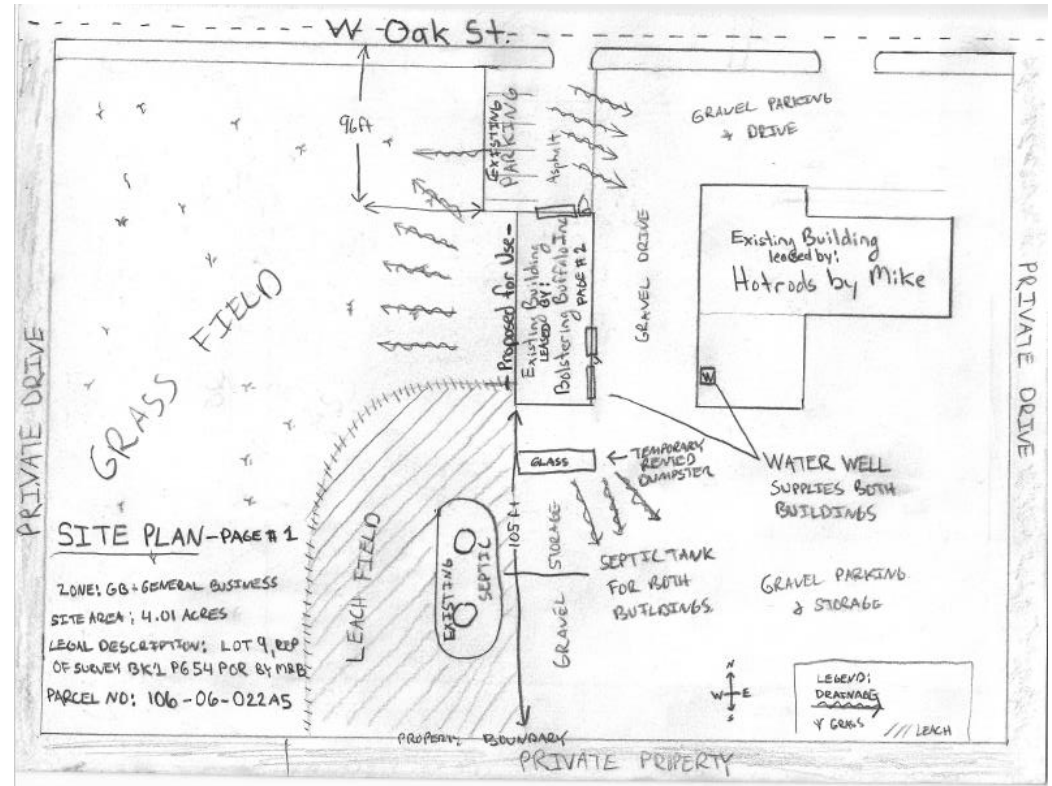 W Oak St.
96ft
EXISTING
PARKING
Asphalt
GRAVEL PARKING
& DRIVE
GRAVEL DRIVE
Existing Building
leased by:
Hotrods by Mike
- Proposed for Use -
Existing Building
LEASED BY:
Bolstering Buffalo Inc
PAGE #2
W
PRIVATE DRIVE
GRASS FIELD
PRIVATE DRIVE
GLASS
← TEMPORARY
RENTED
DUMPSTER
WATER WELL
SUPPLIES BOTH
BUILDINGS
SITE PLAN - PAGE #1
ZONE: GB - GENERAL BUSINESS
SITE AREA: 4.01 ACRES
LEGAL DESCRIPTION: LOT 9,
OF SURVEY BK1 PG54 POR BY M&B
PARCEL NO: 106-06-022A5
LEACH FIELD
EXISTING
SEPTIC
105 ft
GRAVEL STORAGE
SEPTIC TANK
FOR BOTH
BUILDINGS
GRAVEL PARKING
& STORAGE
N
W E
S
LEGEND:
DRAINAGE
Y GRASS
/// LEACH
PROPERTY BOUNDARY
PRIVATE PROPERTY